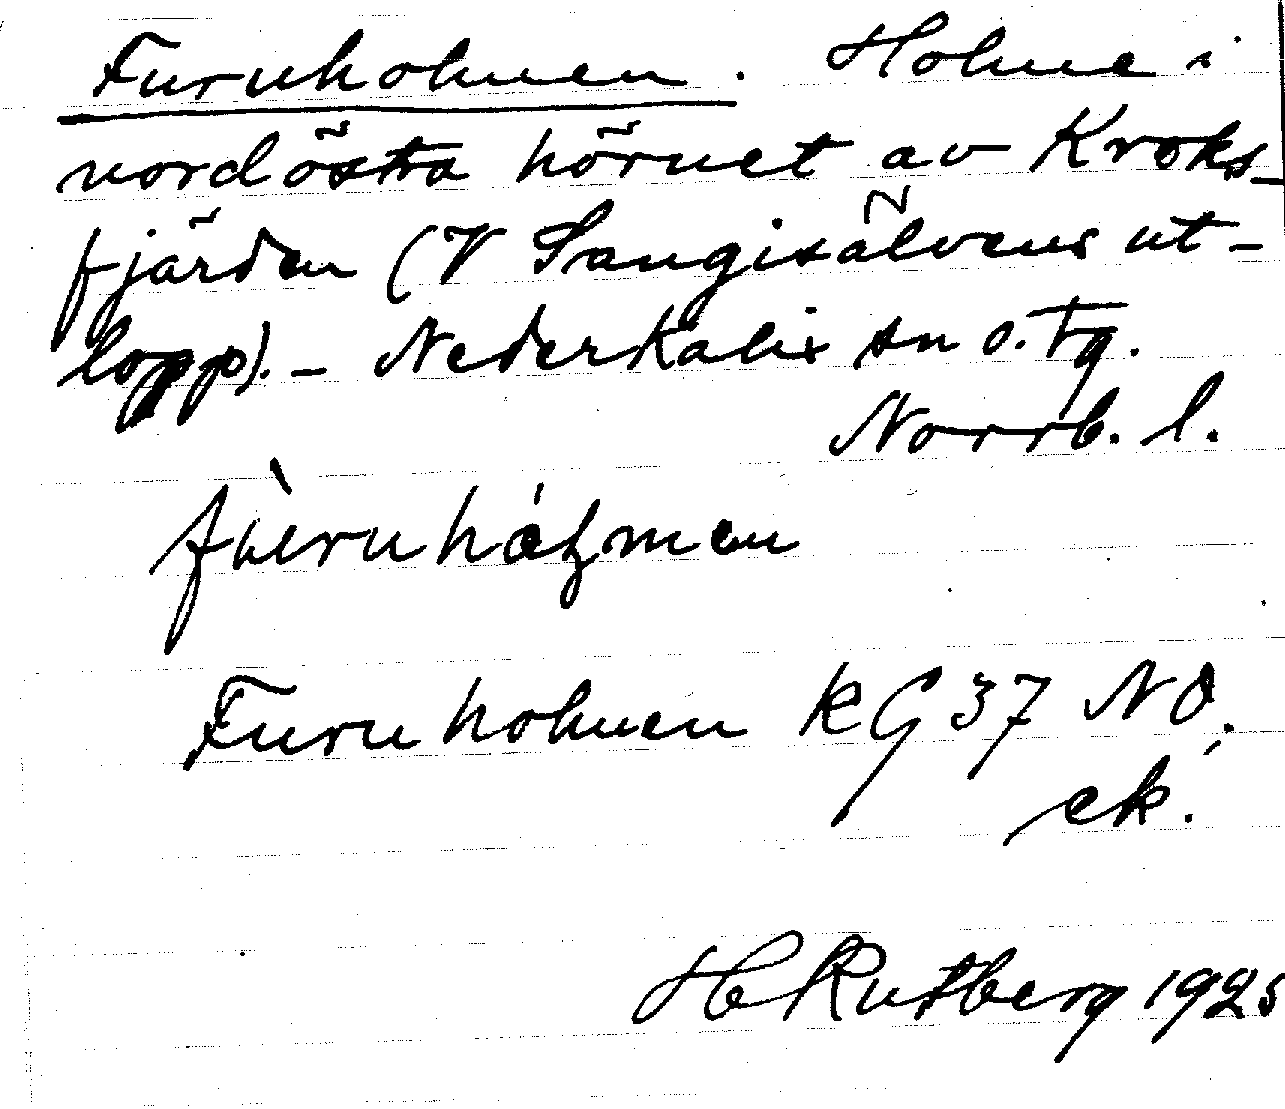 Furuholmen. Holme i
nordöstra hörnet av Kroks-
fjärden (V Sangisälvens ut-
lopp). - Nederkalix sn o. tg.
Norrb. l.
Furuholmen KG 37 NO,
ek.
H Rutberg 1925